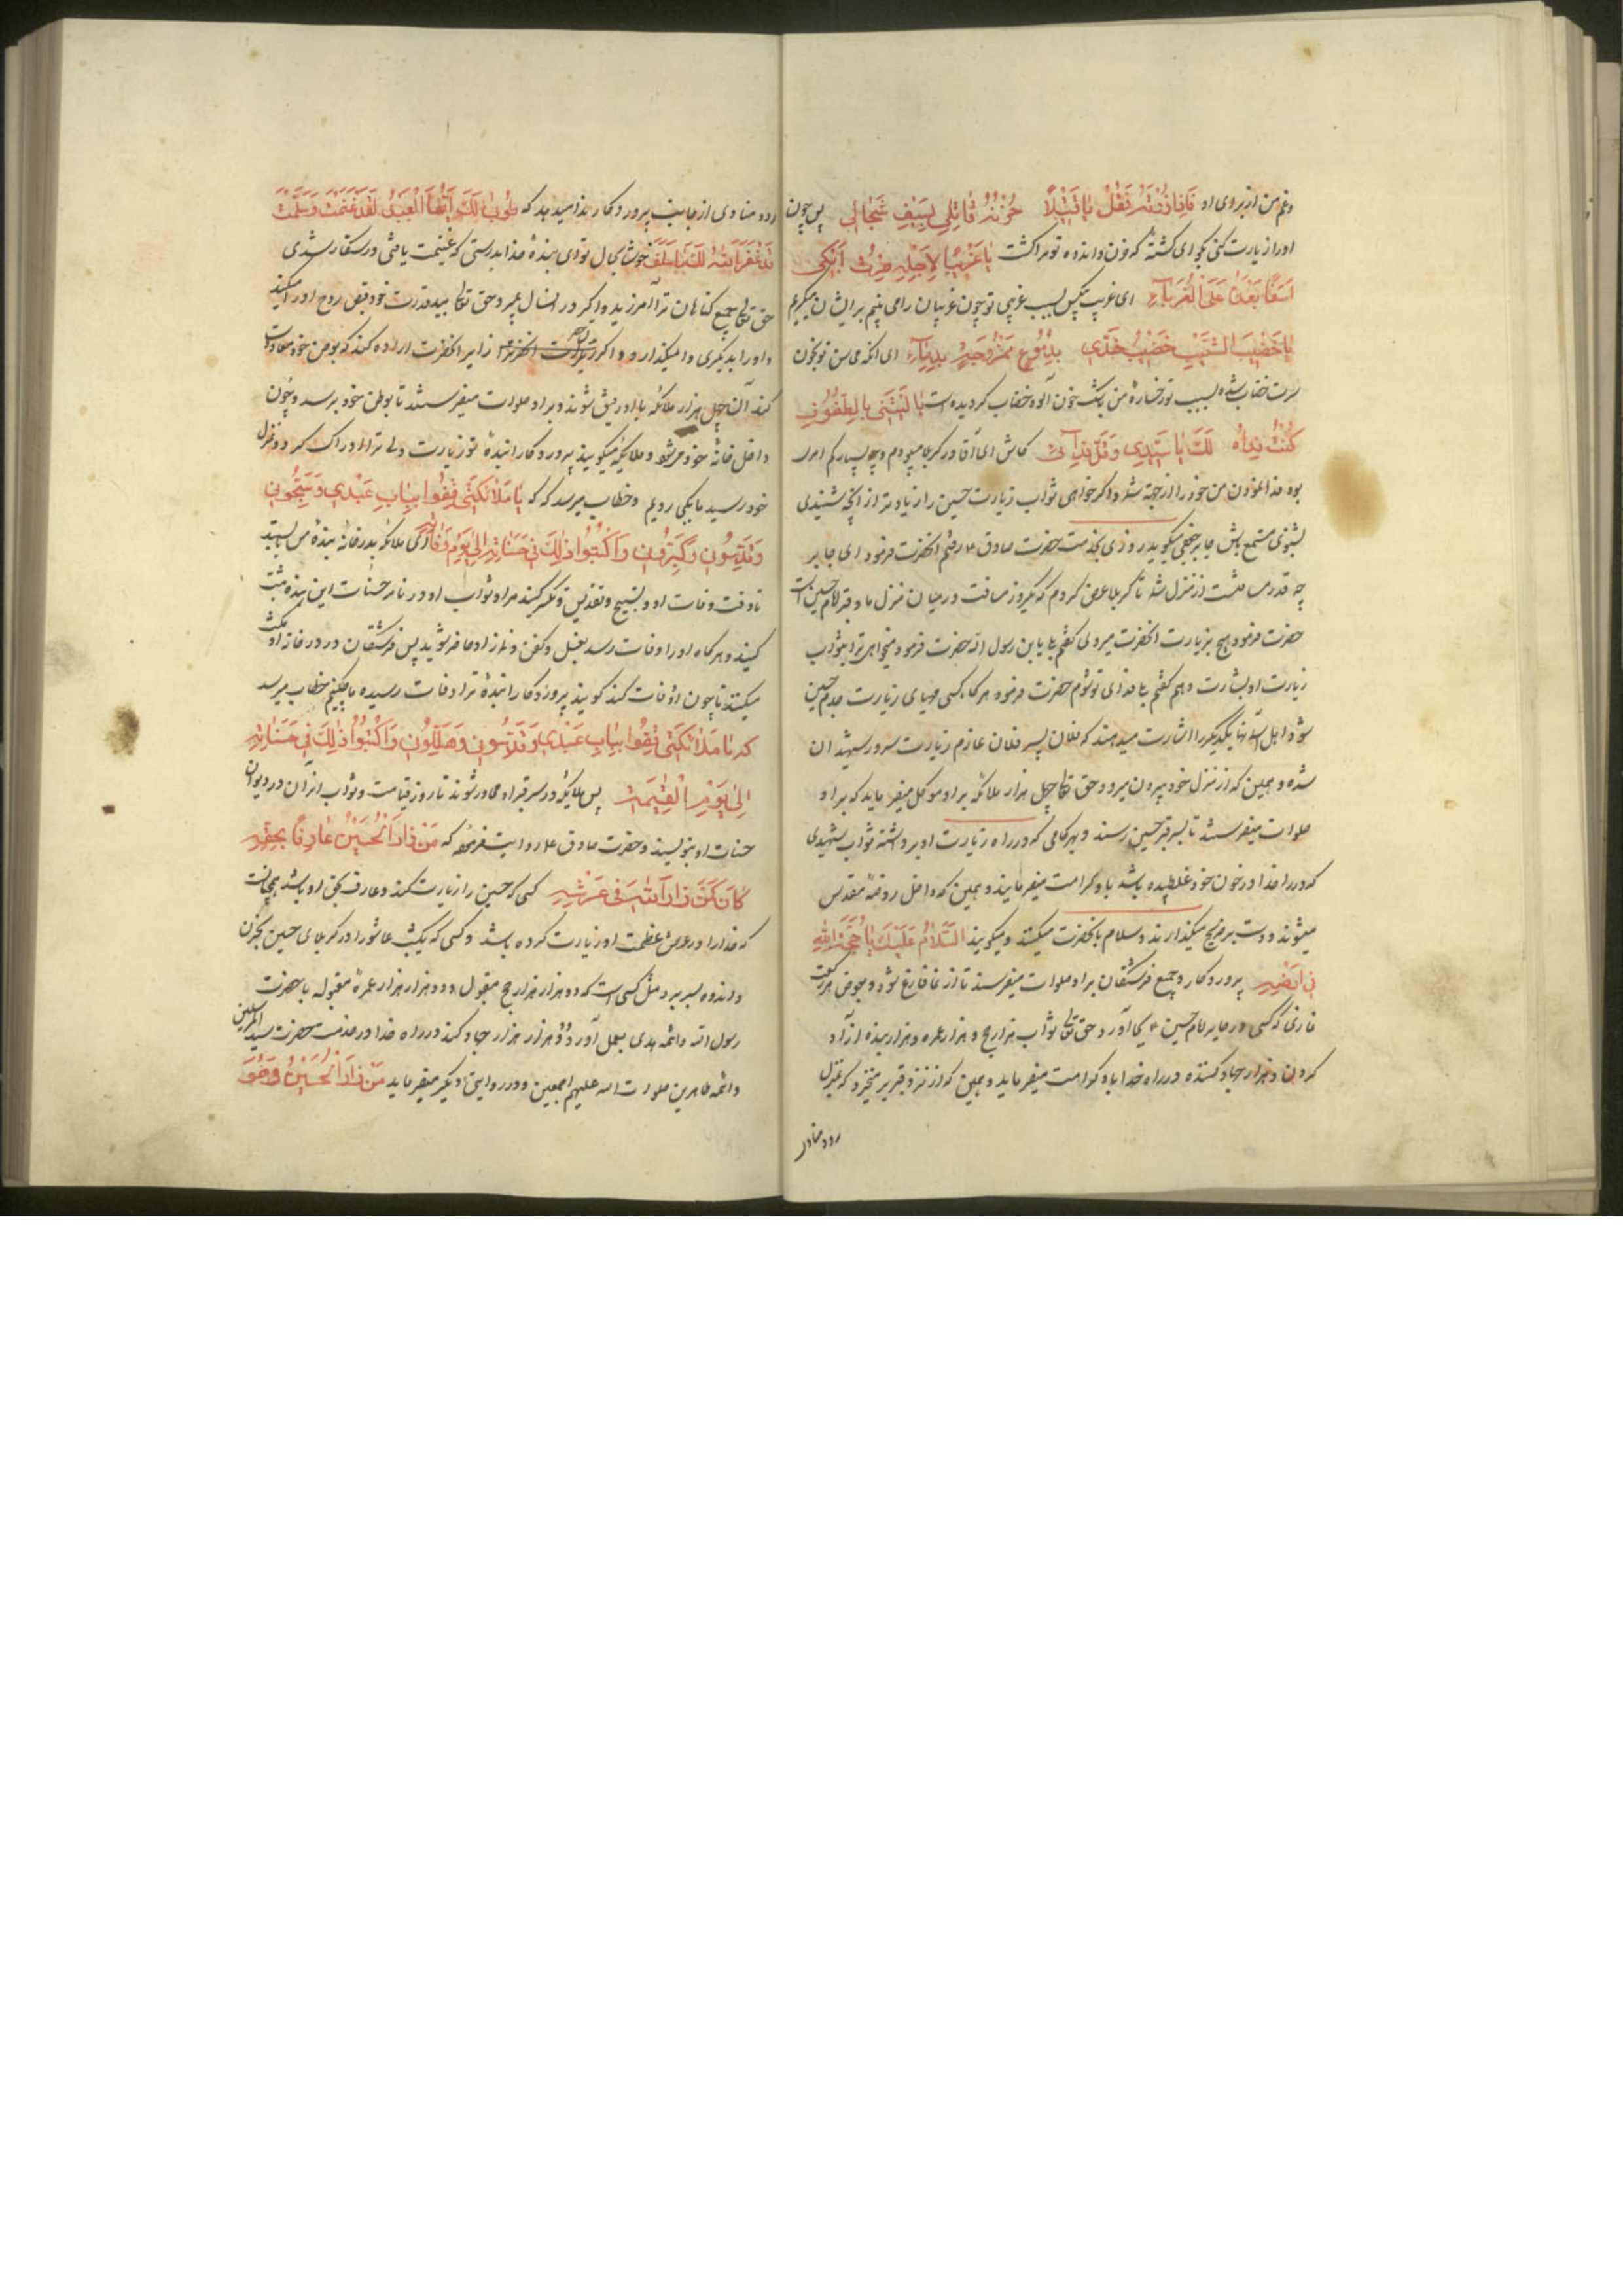 وغم من از برای او فَاِذا زُرْتَهُ فَقُلْ يا قَتيلاً حُزْنُهُ قاتِلي بِسَيْفِ شَجالي پس چون
او را زیارت کنی بگو ای کشتهٔ که حزن و اندوه تو مرا کشت يا غَريبًا لِاَجْلِهِ صِرْتُ اَبْكي
اَسَفًا بَعْدَنا عَلَی الْغُرَباءِ ای غریب بیکس بسبب غریبی تو چون غریبان را می بینم بر ایشان میگریم
يا خَضيبَ الشَّيْبِ خَضيبُ خَدّي بِدُمُوعٍ مَمْزُوجَةٍ بِدِماءِ ای آنکه محاسن تو بخون
سرت خضاب شده بسبب تو رخسارهٔ من باشک خون آلود خضاب کردیده است يا لَيْتَني بِالطُّفُوفِ
كُنْتُ فِداءً لَكَ يا سَيِّدي وَقَلَّ فِدائي کاش ای آقا در کربلا میبودم و چه بسیار کم امری
بود فدا نمودن من خود را از جهة شما و اگر خواهی ثواب زیارت حسین را زیادتر از آنچه شنیدی
بشنوی مستمع باش جابر جعفی میگوید روزی بخدمت حضرت صادق ع رفتم آنحضرت فرمود ای جابر
چه قدر مسافتست از منزل شما تا کربلا عرض کردم که یکروز مسافت در میان منزل ما و قبر امام حسین است
حضرت فرمود هیچ بزیارت آنحضرت میروی گفتم بلی یابن رسول الله حضرت فرمود میخواهی ترا بثواب
زیارت او بشارت دهم گفتم بلی فدای تو شوم حضرت فرمود هرگاه کسی مهیای زیارت جدم حسین
شود اهل آسمانها یکدیگر را بشارت میدهند که فلان پسر فلان عازم زیارت سرور شهیدان
شده و همین که از منزل خود بیرون میرود حق تعالی چهل هزار ملائکه بر او موکل میفرماید که بر او
صلوات میفرستند تا بسر قبر حسین رسند و بهر گامی که در راه زیارت او برداشته ثواب شهیدی
که در راه خدا در خون خود غلطیده باشد باو کرامت میفرمایند و همین که داخل روضهٔ مقدس
میشوند و دست بر ضریح میگذارند و سلام بآنحضرت میکنند و میگویند اَلسَّلامُ عَلَيْكَ يا حُجَّةَ اللهِ
في اَرْضِهِ پروردگار و جمیع فرشتگان بر او صلوات میفرستند تا از نماز فارغ شود و بعوض هر رکعت
نمازی که کسی در حایر امام حسین ع بجا آورد حق تعالی ثواب هزار حج و هزار عمره و هزار بنده آزاد
کردن و هزار جهاد کننده در راه خدا باو کرامت میفرماید و همین که از نزد قبر بر میخیزد که بمنزل
رود منادی
رود منادی از جانب پروردگار ندا میدهد که طُوبی لَكَ اَيُّهَا الْعَبْدُ لَقَدْ غَنِمْتَ وَسَلِمْتَ
قَدْ غَفَرَ اللهُ لَكَ ما سَلَفَ خوشا بحال تو ای بندهٔ خدا بدرستی که غنیمت یافتی و رستگار شدی
حق تعالی جمیع گناهان ترا آمرزید و اگر در آنسال بمیرد حق تعالی بید قدرت خود قبض روح او را میکند
و او را بدیگری وا نمیگذارد و اگر زایر آنحضرت اراده کند که بوطن خود معاودت
کند آن چهل هزار ملائکه با او رفیق شوند و بر او صلوات میفرستند تا بوطن خود برسد و چون
داخل خانهٔ خود میشود ملایکه میگویند پروردگارا بندهٔ تو زیارت ولی ترا ادراک کرد و بمنزل
خود رسید ما بکجا رویم وخطاب میرسد که يا مَلائِكَتي قِفُوا بِبابِ عَبْدي وَسَبِّحُونِ
وَقَدِّسُونِ وَكَبِّرُونِ وَاكْتُبُوا ذلِكَ في حَسَناتِهِ اِلی يَوْمِ وَفاتِهِ ای ملائکه بدر خانهٔ بندهٔ من بایستید
تا وقت وفات او و تسبیح و تقدیس و تکبیر کنید مرا و ثواب او در نامه حسنات این بنده ثبت
کنید و هرگاه او را وفات رسد بغسل و کفن و نماز او حاضر شوید پس فرشتگان در در خانه او مکث
میکنند تا چون او وفات کند گویند پروردگارا بندهٔ ترا وفات رسیده ما چکنیم خطاب میرسد
که يا مَلائِكَتي قِفُوا بِبابِ عَبْدي وَقَدِّسُونِ وَهَلِّلُونِ وَاكْتُبُوا ذلِكَ في حَسَناتِهِ
اِلی يَوْمِ الْقِيٰمَةِ پس ملایکه در سر قبر او مجاور شوند تا روز قیامت و ثواب آنرا در دیوان
حسنات او بنویسند و حضرت صادق ع روایت فرموده که مَنْ زارَ الْحُسَيْنَ عارِفًا بِحَقِّهِ
كانَ كَمَنْ زارَ اللهَ في عَرْشِهِ کسی که حسین را زیارت کند و عارف بحق او باشد همچنانست
که خدا را در عرش عظمت او زیارت کرده باشد و کسی که یکشب عاشورا در کربلای حسین بحزن
و اندوه بسر برد مثل کسی است که دو هزار هزار حج مقبول و دو هزار هزار عمرهٔ مقبوله با حضرت
رسول الله و ائمه هدی بعمل آورد و دو هزار هزار جهاد کند در راه خدا در خدمت حضرت سید المرسلین
و ائمه طاهرین صلوات الله علیهم اجمعین و در روایتی دیگر میفرماید مَنْ زارَ الْحُسَيْنَ وَهُوَ